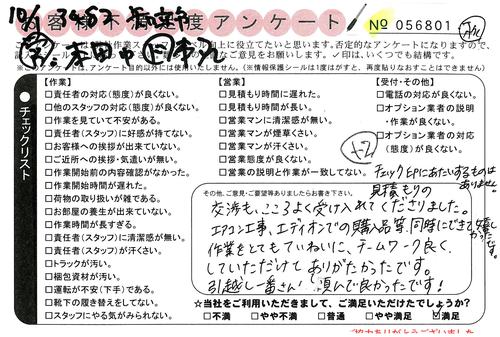 客様不満足度アンケート
№ 056801
【作業】
□責任者の対応(態度)が良くない。
□他のスタッフの対応(態度)が良くない。
□作業を見ていて不安がある。
□責任者(スタッフ)に好感が持てない。
□お客様への挨拶が出来ていない。
□ご近所への挨拶・気遣いが無い。
□作業開始前の内容確認がなかった。
□作業開始時間が遅れた。
□荷物の取り扱いが雑である。
□お部屋の養生が出来ていない。
□作業時間が長すぎる。
□責任者(スタッフ)に清潔感が無い。
□責任者(スタッフ)が汗くさい。
□トラックが汚い。
□梱包資材が汚い。
□運転が不安(下手)である。
□靴下の履き替えをしてない。
□スタッフにやる気がみられない。
【営業】
□見積もり時間に遅れた。
□見積もり時間が長い。
□営業マンに清潔感が無い。
□営業マンが煙草くさい。
□営業マンが汗くさい。
□営業態度が良くない。
□営業の説明と作業が一致してない。
【受付・その他】
□電話の対応が良くない。
□オプション業者の説明
・作業が良くない。
□オプション業者の対応
(態度)が良くない。
チェックリスト
チェック印にあたいするものは
ありません。
その他、ご意見・ご要望等ありましたらお書き下さい。
見積もりの
交渉も、こころよく受け入れてくださりました。
エアコン工事、エディオンでの購入品等、同時にできて嬉しかったです。
作業をとてもていねいに、チームワーク良く、
していただけて ありがたかったです。
引越し一番さん 頼んで良かったです!
☆当社をご利用いただきまして、ご満足いただけたでしょうか?
□不満 □やや不満 □普通 □やや満足 ☑満足